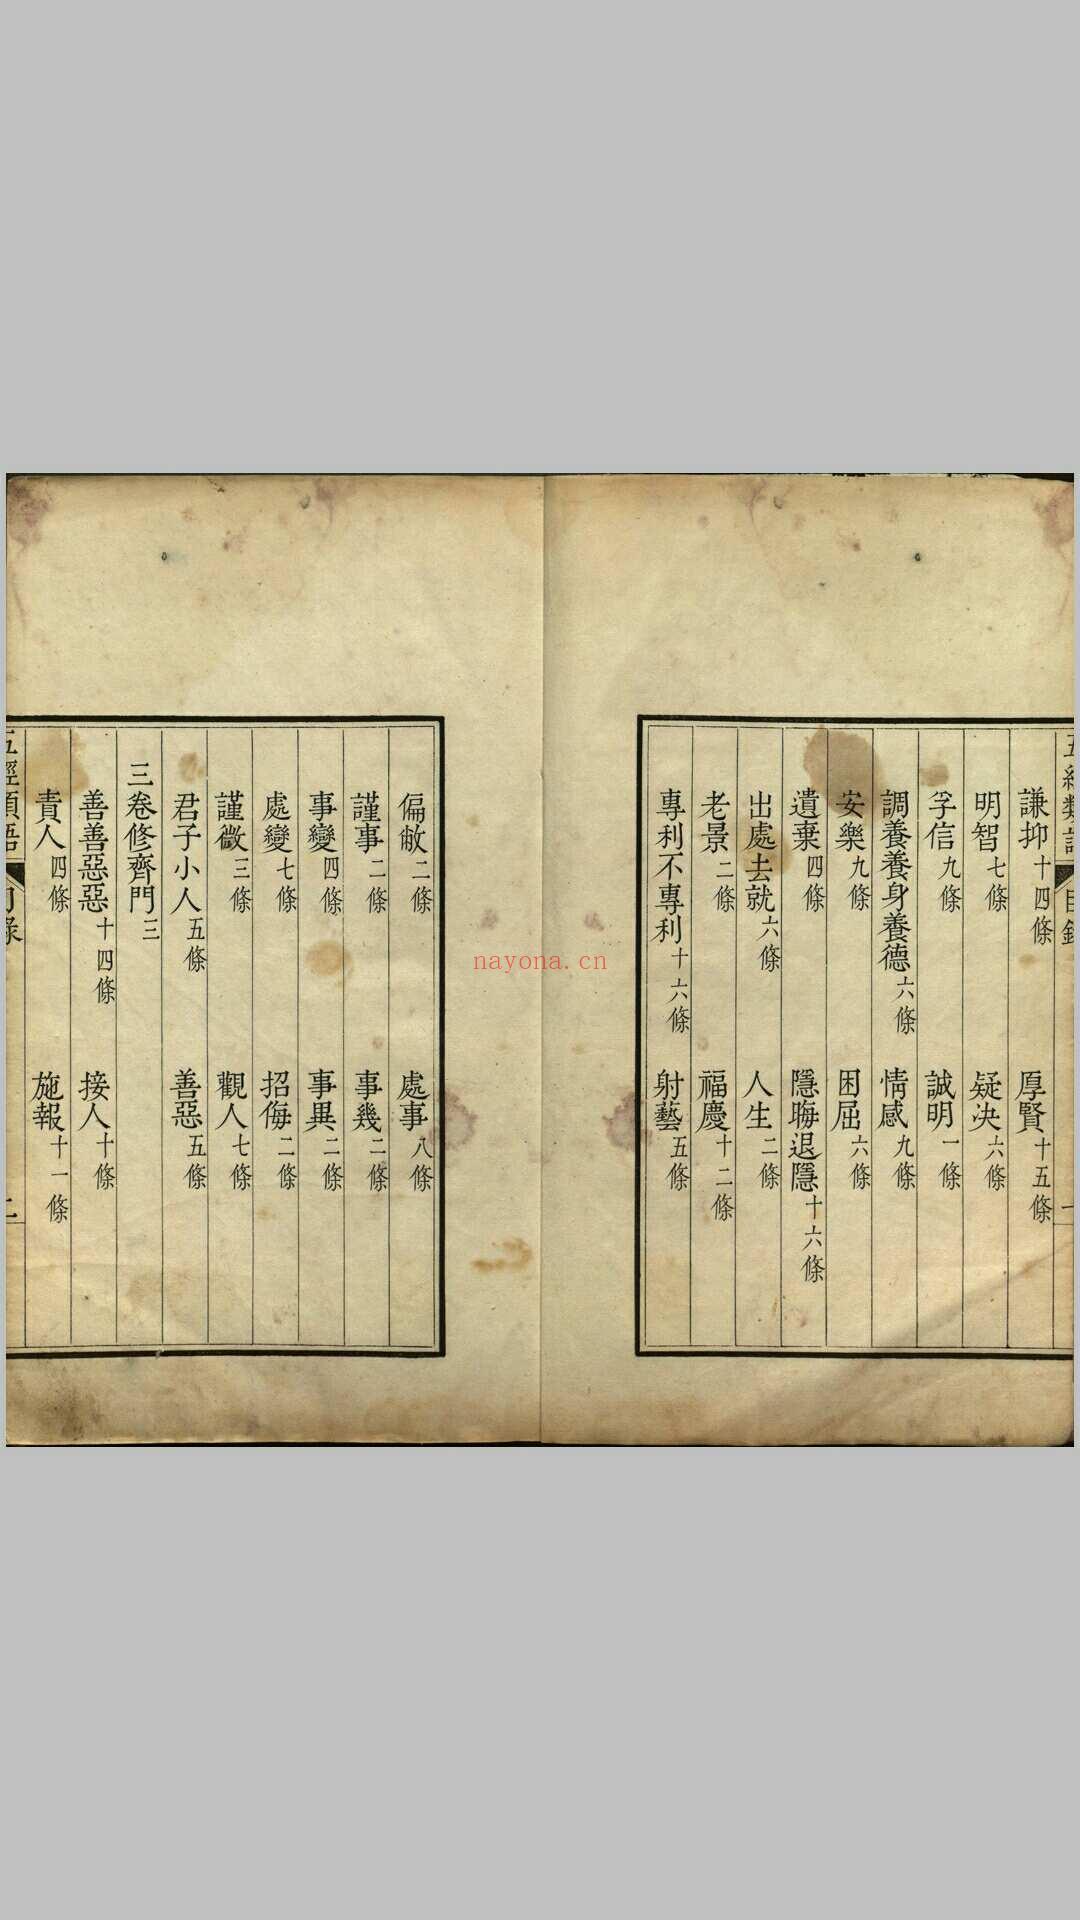 五經類語 目錄 一
謙抑十四條 厚賢十五條
明智七條 疑決六條
孚信九條 誠明一條
調養養身養德六條 情感九條
安樂九條 困屈六條
遺棄四條 隱晦退隱十六條
出處去就六條 人生二條
老景二條 福慶十二條
專利不專利十六條 射藝五條
偏敝二條 處事八條
謹事二條 事幾二條
事變四條 事異二條
處變七條 招侮二條
謹微三條 觀人七條
君子小人五條 善惡五條
三卷修齊門三
善善惡惡十四條 接人十條
責人四條 施報十一條
五經類語 目錄 二
nayona.cn